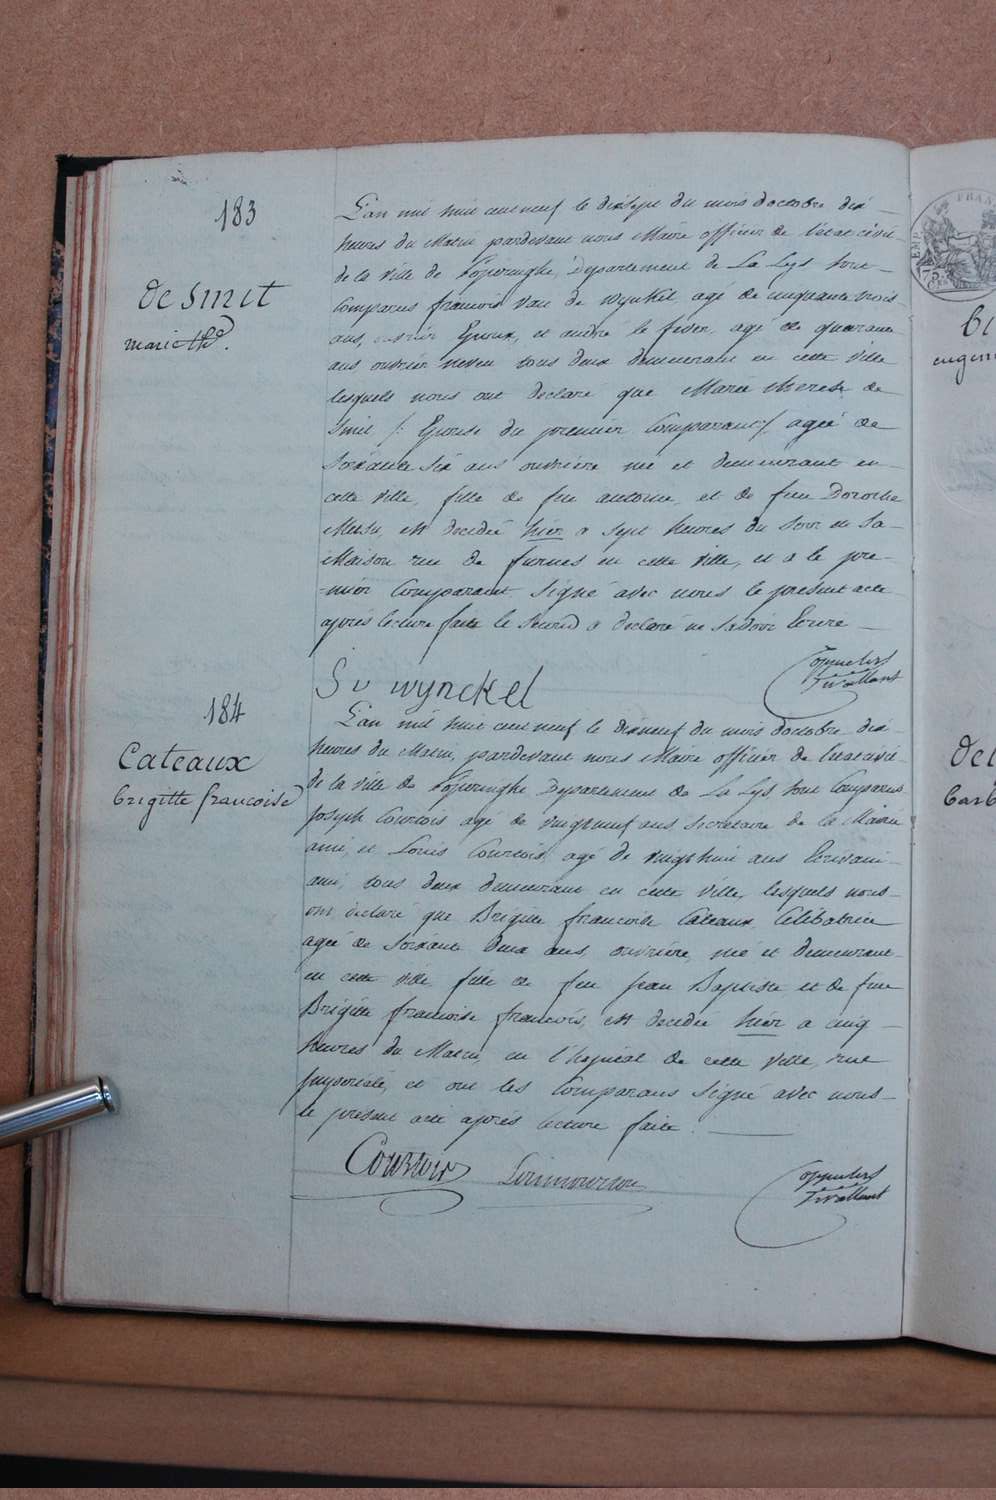 183
De Smit
marie thé
L'an mil huit cent neuf le dixsept du mois d'octobre dix
heures du Matin pardevant nous Maire officier de l'état civil
de la ville de Poperinghe, Département de La Lys sont
Comparus francois Van de Wynkel, agé de cinquante trois
ans, ouvrier Epoux, et andré le fever, agé de quarante
ans ouvrier neveu tous deux demeurant en cette ville
lesquels nous ont declaré que Marie therese de
Smit /: Epouse du premier Comparant :/ agée de
Soixante six ans ouvriere née et demeurant en
cette ville, fille de feu antoine, et de feue Dorothe
est decedée hier a sept heures du soir en sa
Maison rue de furnes en cette ville, et a le pre-
-mier Comparant signé avec nous le present acte
après lecture faite le second a declaré ne savoir Ecrire
S v wynckel
184
Cateaux
brigitte francoise
L'an mil huit cent neuf le dixneuf du mois d'octobre dix
heures du Matin, pardevant nous Maire officier de l'état civil
de la ville de Poperinghe Departement de La Lys sont Comparus
Joseph Courtois agé de vingtneuf ans secretaire de la Mairie
ami, et Louis Courtois, agé de vingthuit ans Ecrivain
ami, tous deux demeurant en cette ville, lesquels nous
ont declaré que Brigitte francoise Cateaux, Celibataire
agée de soixante deux ans, ouvriere, née et demeurant
en cette ville, fille de feu Jean Baptiste et de feue
Brigitte francoise francois, est decedée hier a cinq
heures du Matin, en l'hopital de cette ville, rue
Imperiale, et ont les Comparans signé avec nous
le present acte après lecture faite.
Courtois
EMP
FRAN
75
eugen